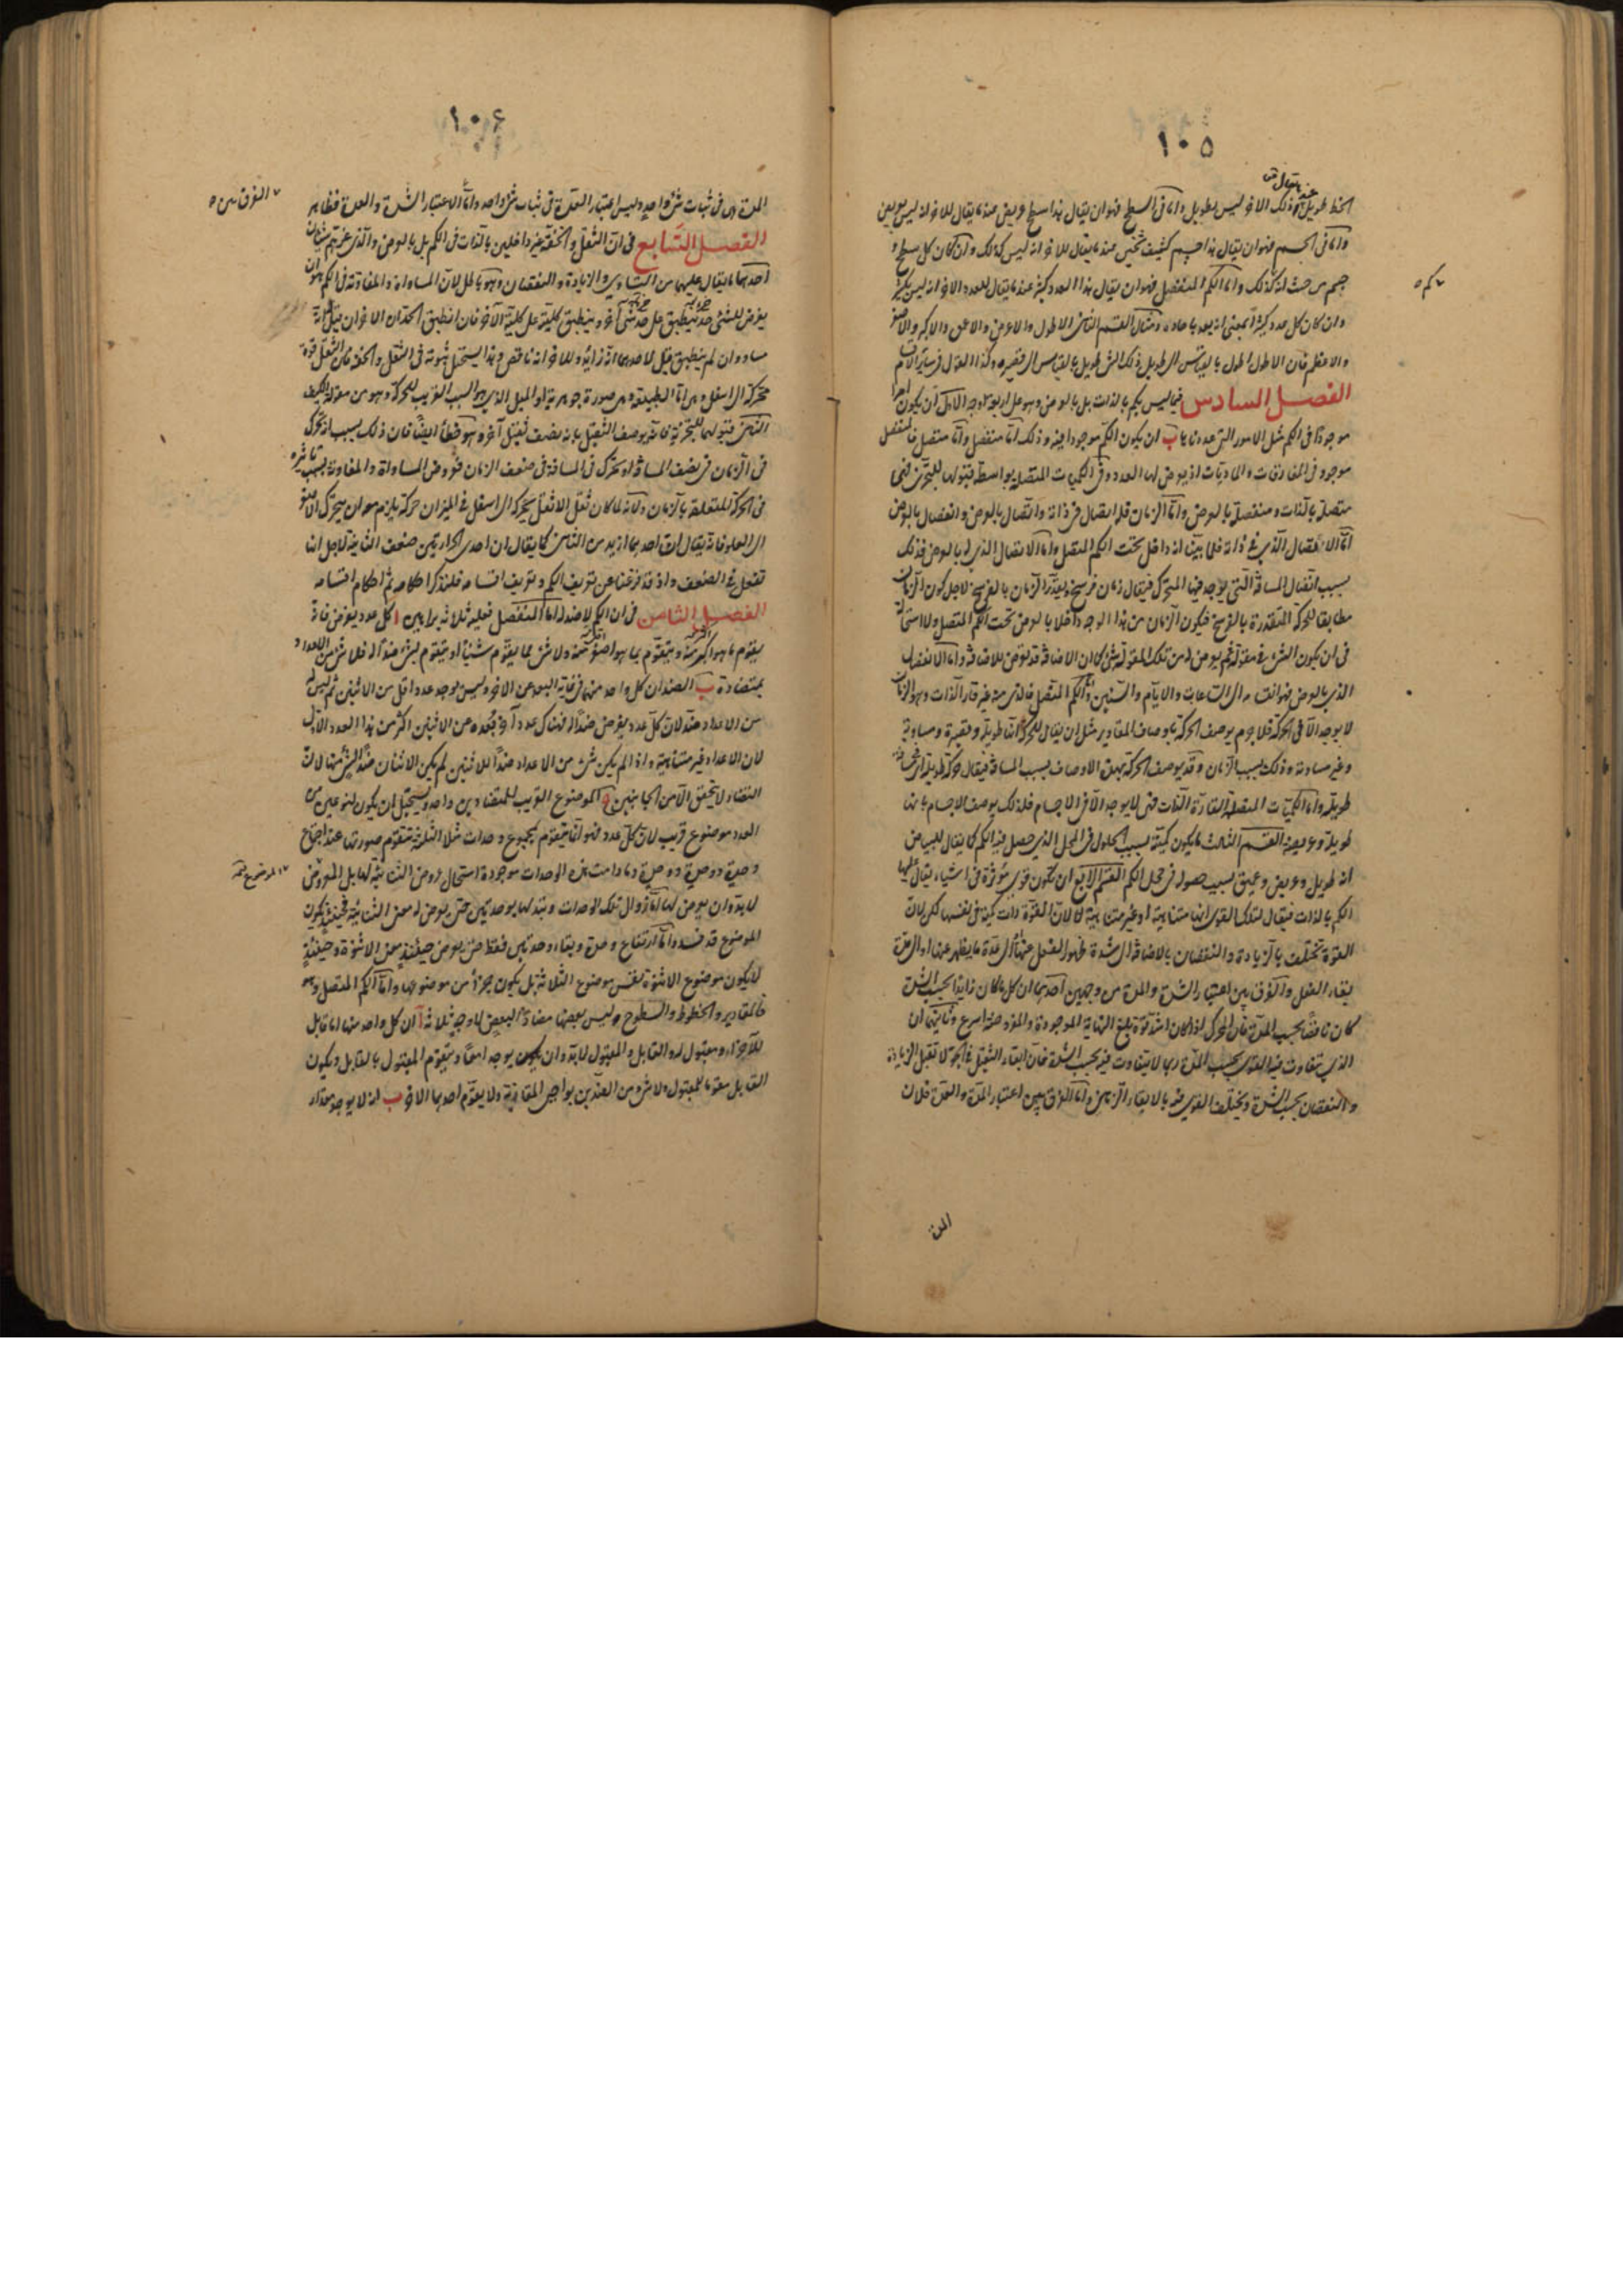 ١٠٥
يقال
الخط طويل وذلك الآخر ليس بطويل واما فى السطح فهو ان يقال هذا سطح عريض عندما يقال للاخر انه ليس بعريض
واما فى الجسم فهو ان يقال هذا جسم كثيف ثخين عندما يقال للاخر انه ليس كذلك وان كان كل سطح و
جسم من حيث انه كذلك واما الكم المنفصل فهو ان يقال هذا العدد كثير عندما يقال للعدد الاخر انه ليس بكثير
كم
وان كان كل عدد كثيرا بمعنى انه يعد باحاده ومثال القسم الثانى الاطول والاعرض والاعمق والاكبر والاصغر
والاعظم فان الاطول اطول بالقياس الى طويل ذلك الشئ طويل بالقياس الى قصيره وكذا القول فى ساير الاقسام
الفصل السادس فيما ليس بكم بالذات بل بالعرض وهو على اربعة اوجه الاول ان يكون امرا
موجودا فى الكم مثل الامور التى عددناها ب ان يكون الكم موجودا فيه وذلك اما منفصل واما متصل فالمنفصل
موجود فى المفارقات والماديات اذ يعرض لها العدد وفى الكميات المتصلة بواسطة قبولها للتجزى فهى
متصلة بالذات ومنفصلة بالعرض واما الزمان فله اتصال فى ذاته واتصال بالعرض وانفصال بالعرض
اما الاتصال الذى فى ذاته فلما بينا انه داخل تحت الكم المتصل واما الاتصال الذى له بالعرض فذلك
بسبب اتصال المسافة التى يوجد فيها المتحرك فيقال زمان فرسخ ويقدر الزمان بالفرسخ لاجل كون الزمان
مطابقا للحركة المتقدرة بالفرسخ فيكون الزمان من هذا الوجه داخلا بالعرض تحت الكم المتصل ولا استحالة
فى ان يكون الشئ فى مقولة ثم يعرض له من تلك المقولة شئ كما ان الاضافة قد تعرض للاضافة واما الانفصال
الذى بالعرض فهو انقسامه الى الساعات والايام والسنين واما الكم المتصل فالذى منه غير قار الذات وهو الزمان
لا يوجد الا فى الحركة فلا جرم يوصف الحركة باوصاف المقادير مثل ان يقال للحركة انها طويلة وقصيرة ومساوية
وغير مساوية وذلك بسبب الزمان وقد يوصف الحركة بهذه الاوصاف بسبب المسافة فيقال حركة طويلة
طويلة واما الكميات المتصلة القارة الذات فهى لا يوجد الا فى الاجسام فلذلك يوصف الاجسام بانها
طويلة وعريضة القسم الثالث ما يكون كمية بسبب الحلول فى المحل الذى حصل فيه الكم كما يقال للبياض
انه طويل وعريض وعميق بسبب حصوله فى محل الكم القسم الرابع ان تكون قوى مؤثرة فى اشياء يقال عليها
الكم بالذات فيقال لتلك القوى انها متناهية او غير متناهية لا لان القوة ذات كمية فى نفسها لكن لان
القوة تختلف بالزيادة والنقصان بالاضافة الى شدة ظهور الفعل عنها او الى عدة ما يظهر عنها او الى مدة
بقاء الفعل والفرق بين اعتبار الشدة والمدة من وجهين احدهما ان كل ما كان زايدا بحسب الشدة
كان ناقصا بحسب المدة فان المحرك اذا كان اشد قوة بلغ النهاية الموجودة والمفروضة اسرع وثانيهما ان
الذى يتفاوت فيه القوى بحسب المدة ربما لا يتفاوت فيه بحسب الشدة فان ابقاء الثقيل فى الجو لا تقبل الزيادة
والنقصان بحسب الشدة ويختلف القوى فيه بالابقاء الزمانى واما الفرق بين اعتبار المدة والعدة فلان
المدة
١٠٦
المدة هى فى ثبات شئ واحد وليس اعتبار العدة فى ثبات شئ واحد واما الاعتبار الشدة والعدة فظاهر
الفرق بين
الفصل السابع فى ان الثقل والخفة غير داخلين بالذات فى الكم بل بالعرض والذى غرهم شيئان
احدهما ما يقال عليهما من التساوى والزيادة والنقصان وهو باطل لان المساواة والمفاوتة فى الكم هو ان
يفرض للشئ حد ينطبق على حد شئ آخر وينطبق كليته على كلية الآخر فان انطبق الحدان الاخران قيل انه
مساو وان لم ينطبق قيل لاحدهما انه زائد وللاخر انه ناقص وهذا يستحيل ثبوته فى الثقل والخفة فان الثقل قوة
محركة الى اسفل وهى اما الطبيعة وهى صورة جوهرية او الميل الذى هو السبب القريب للحركة وهو من مقولة الكيف
الثانى قبولها للتجزية فانه يوصف الثقيل بانه نصف ثقيل آخر وهو خطأ ايضا فان ذلك بسبب انه تحرك
فى الزمان فى نصف المسافة او تحرك فى المسافة فى ضعف الزمان فعروض المساواة والمفاوتة بسبب تاثيره
فى الحركة المتعلقة بالزمان ولانه لما كان ثقل الاثقل يحركه الى اسفل فى الميزان حركة يلزم معه ان يتحرك الاصغر
الى العلو فانه يقال ان احدهما ازيد من الثانى كما يقال ان احدى الحرارتين ضعف الثانية لاجل انها
تفعل فى الضعف واذ قد فرغنا عن تعريف الكم وتعريف اقسامه فلنذكر احكامه ثم احكام اقسامه
الفصل الثامن فى ان الكم لا ضد له اما المنفصل فعليه ثلاثة براهين ا كل عدد يفرض فانه
يتقوم بما هو اكثر منه ويتقوم بما هو اصغر منه ولا شئ مما يتقوم شيئا او يتقوم بشئ ضدا له فلا شئ من الاعداد
بمتضادة ب الضدان كل واحد منهما فى غاية البعد عن الاخر وليس يوجد عدد اقل من الاثنين ثم ليس له
من الاعداد ضد لان كل عدد يفرض ضدا له فهناك عدد آخر بعده عن الاثنين اكثر من هذا العدد الاول
لان الاعداد غير متناهية واذا لم يكن شئ من الاعداد ضدا للاثنين لم يكن الاثنان ضدا لشئ منها لان
التضاد لا يتحقق الا من الجانبين ج الموضوع القريب للمتضادين واحد ويستحيل ان يكون لنوعين من
العدد موضوع قريب لان كل عدد فهو انما يتقوم بمجموع وحدات مثلا الثلثة تتقوم صورتها عند اجتماع
وحدة ووحدة ووحدة وما دامت هذه الوحدات موجودة استحال عروض الثنائية لها بل المعروض
لا بد وان يعرض لها اما زوال تلك الوحدات وتبدلها بوحدتين حتى يعرض له معنى الثنائية فحينئذ يكون
الموضوع قد فسد واما ارتفاع وحدة وبقاء وحدتين فقط حتى يعرض حينئذ معنى الاثنوة وحينئذ
لا يكون موضوع الاثنوة نفس موضوع الثلاثة بل يكون جزءا من موضوعها واما الكم المتصل وهو
فالمقادير والخطوط والسطوح وليس بعضها مضادا لبعض لاوجه ثلاثة ا ان كل واحد منها اما قابل
للآخر او مقبول له والقابل والمقبول لا بد وان يكون يوجدا معا ويتقوم المقبول بالقابل ويكون
القابل مقوما للمقبول ولا شئ من الضدين بواجبى المقارنة ولا يقوم احدهما الاخر ب انه لا يوجد مقدار